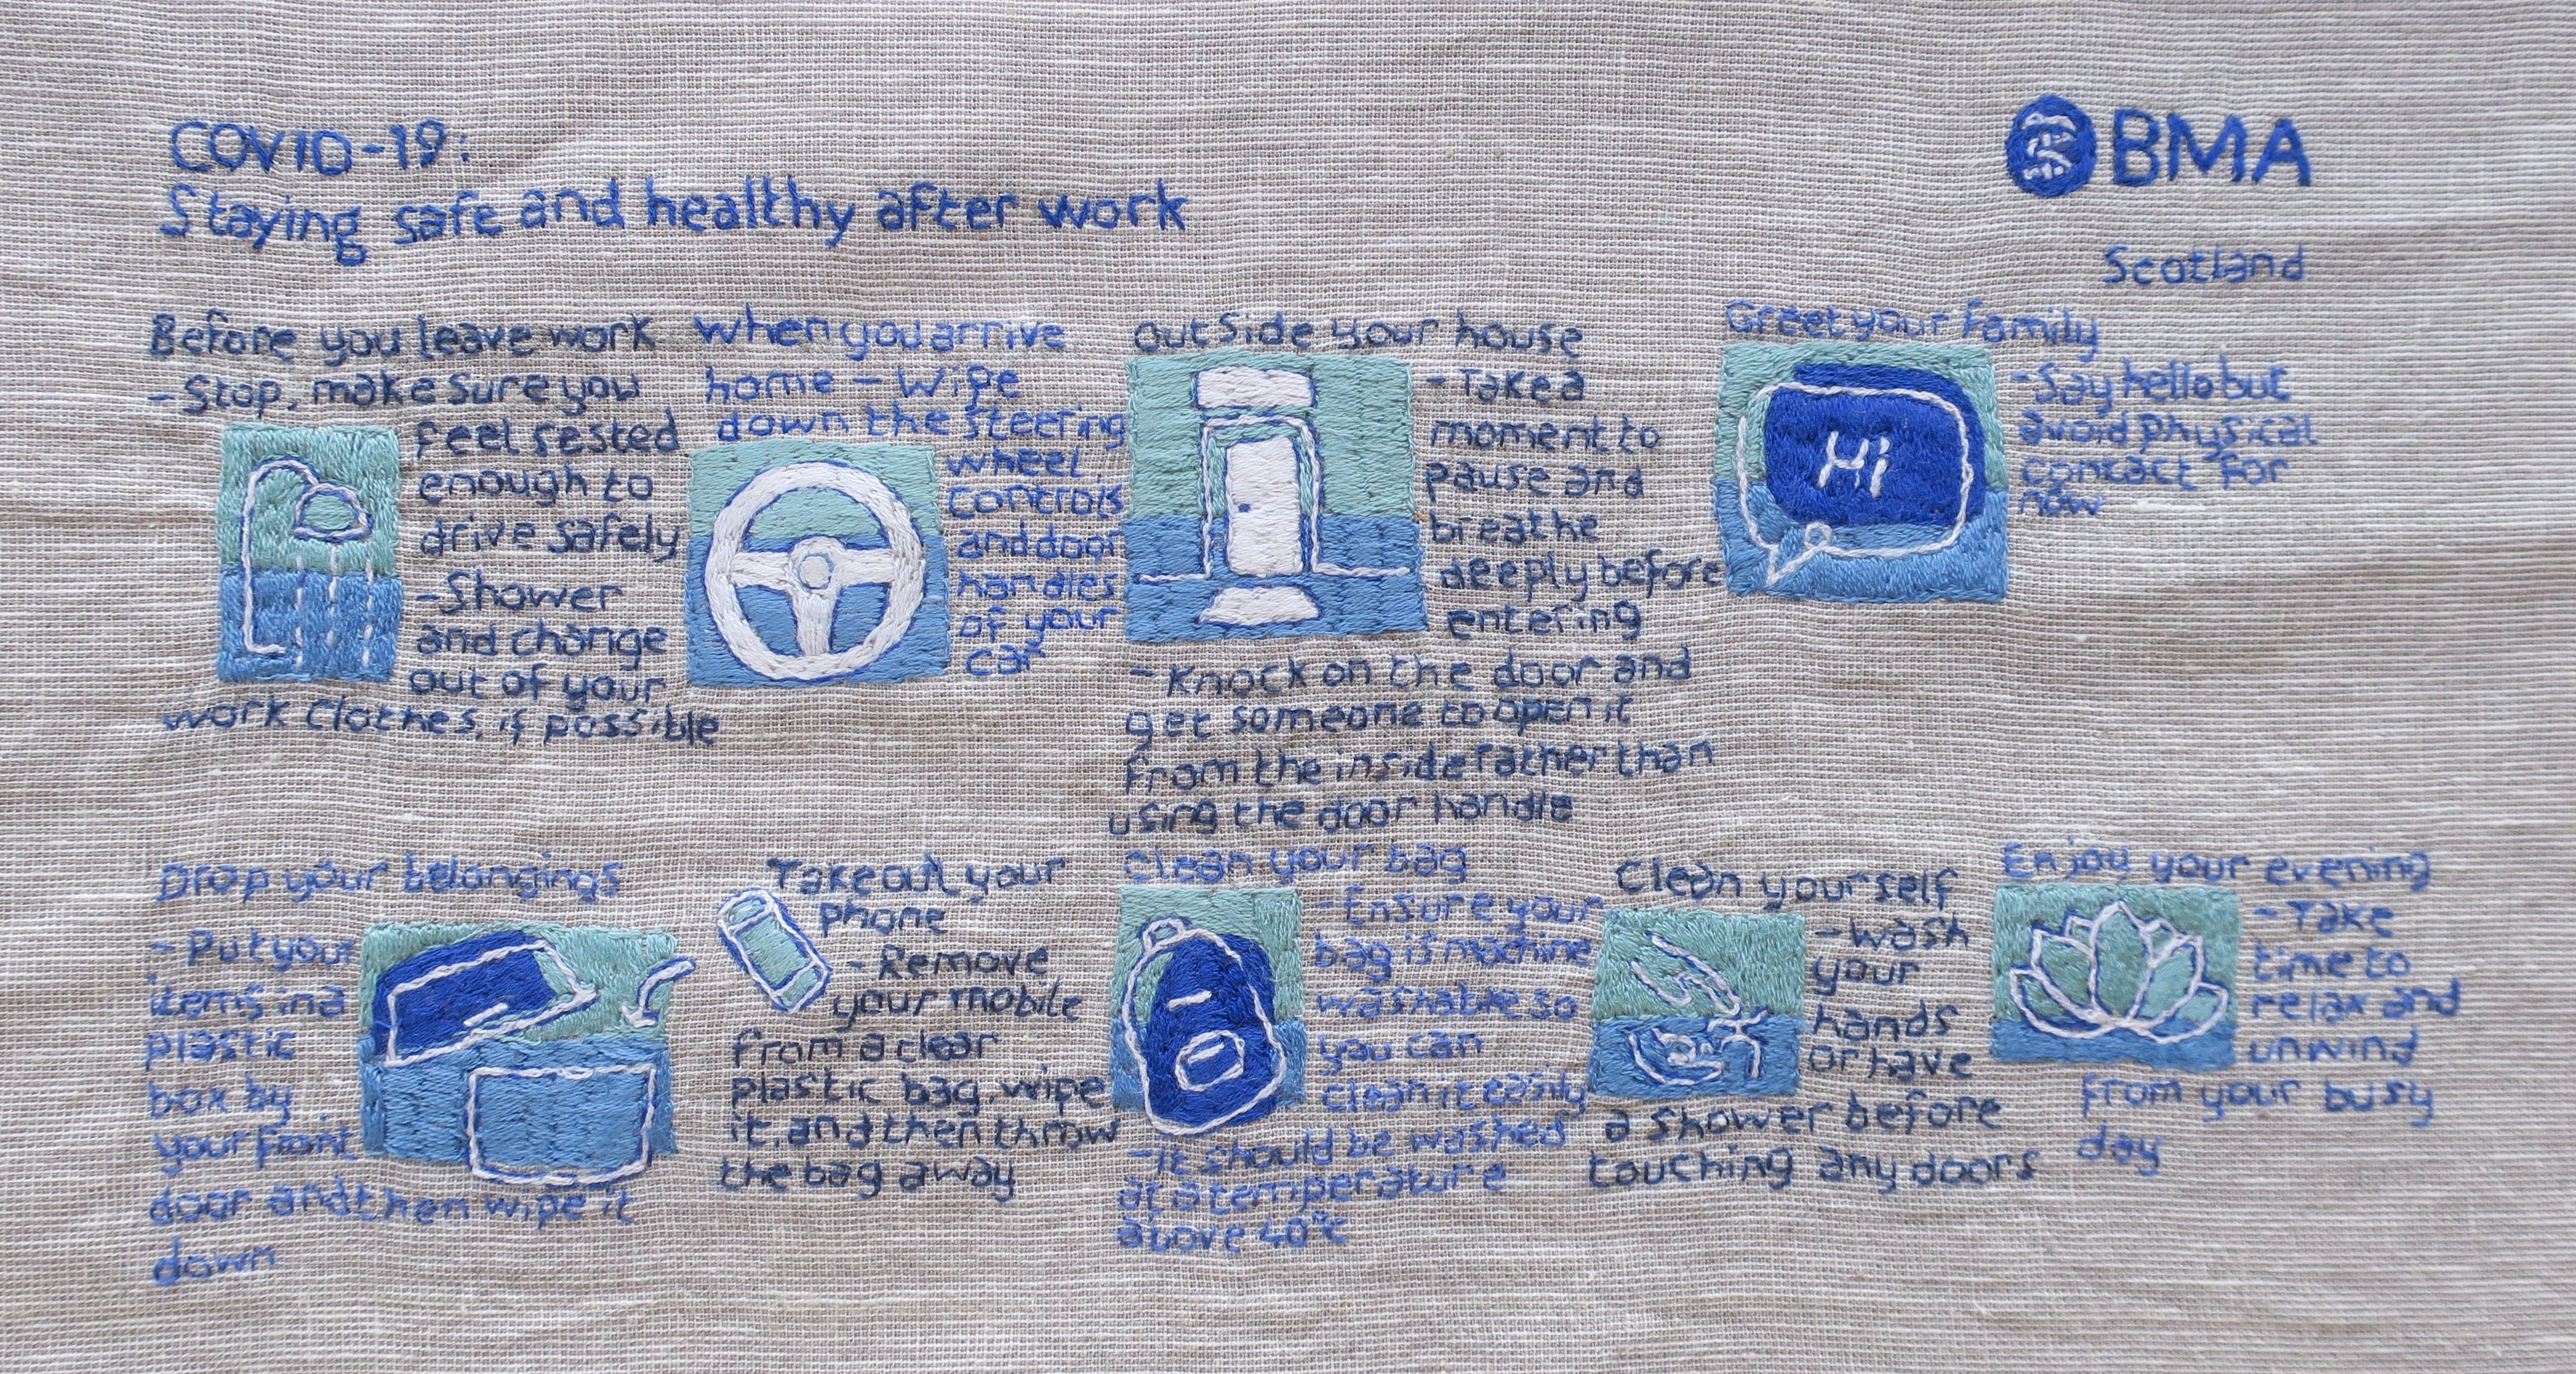 COVID-19:
Staying safe and healthy after work
BMA
Scotland
Before you leave work
- Stop, make sure you
feel sested
enough to
drive safely
- Shower
and change
out of your
work clothes, if possible
when you arrive
home - Wipe
down the steering
wheel
controls
and door
handles
of your
car
outside your house
- Take a
moment to
pause and
breathe
deeply before
entering
- Knock on the door and
get someone to open it
from the inside rather than
using the door handle
Greet your family
Hi
- Say hello but
avoid physical
contact for
now
Drop your belongings
- Put your
items in a
plastic
box by
your front
door and then wipe it
down
Take out your
phone
- Remove
your mobile
from a clear
plastic bag, wipe
it, and then throw
the bag away
Clean your bag
- Ensure your
bag is machine
washable so
you can
clean it easily
- It should be washed
at a temperature
above 40°c
Clean yourself
- wash
your
hands
or have
a shower before
touching any doors
Enjoy your evening
- Take
time to
relax and
unwind
from your busy
day